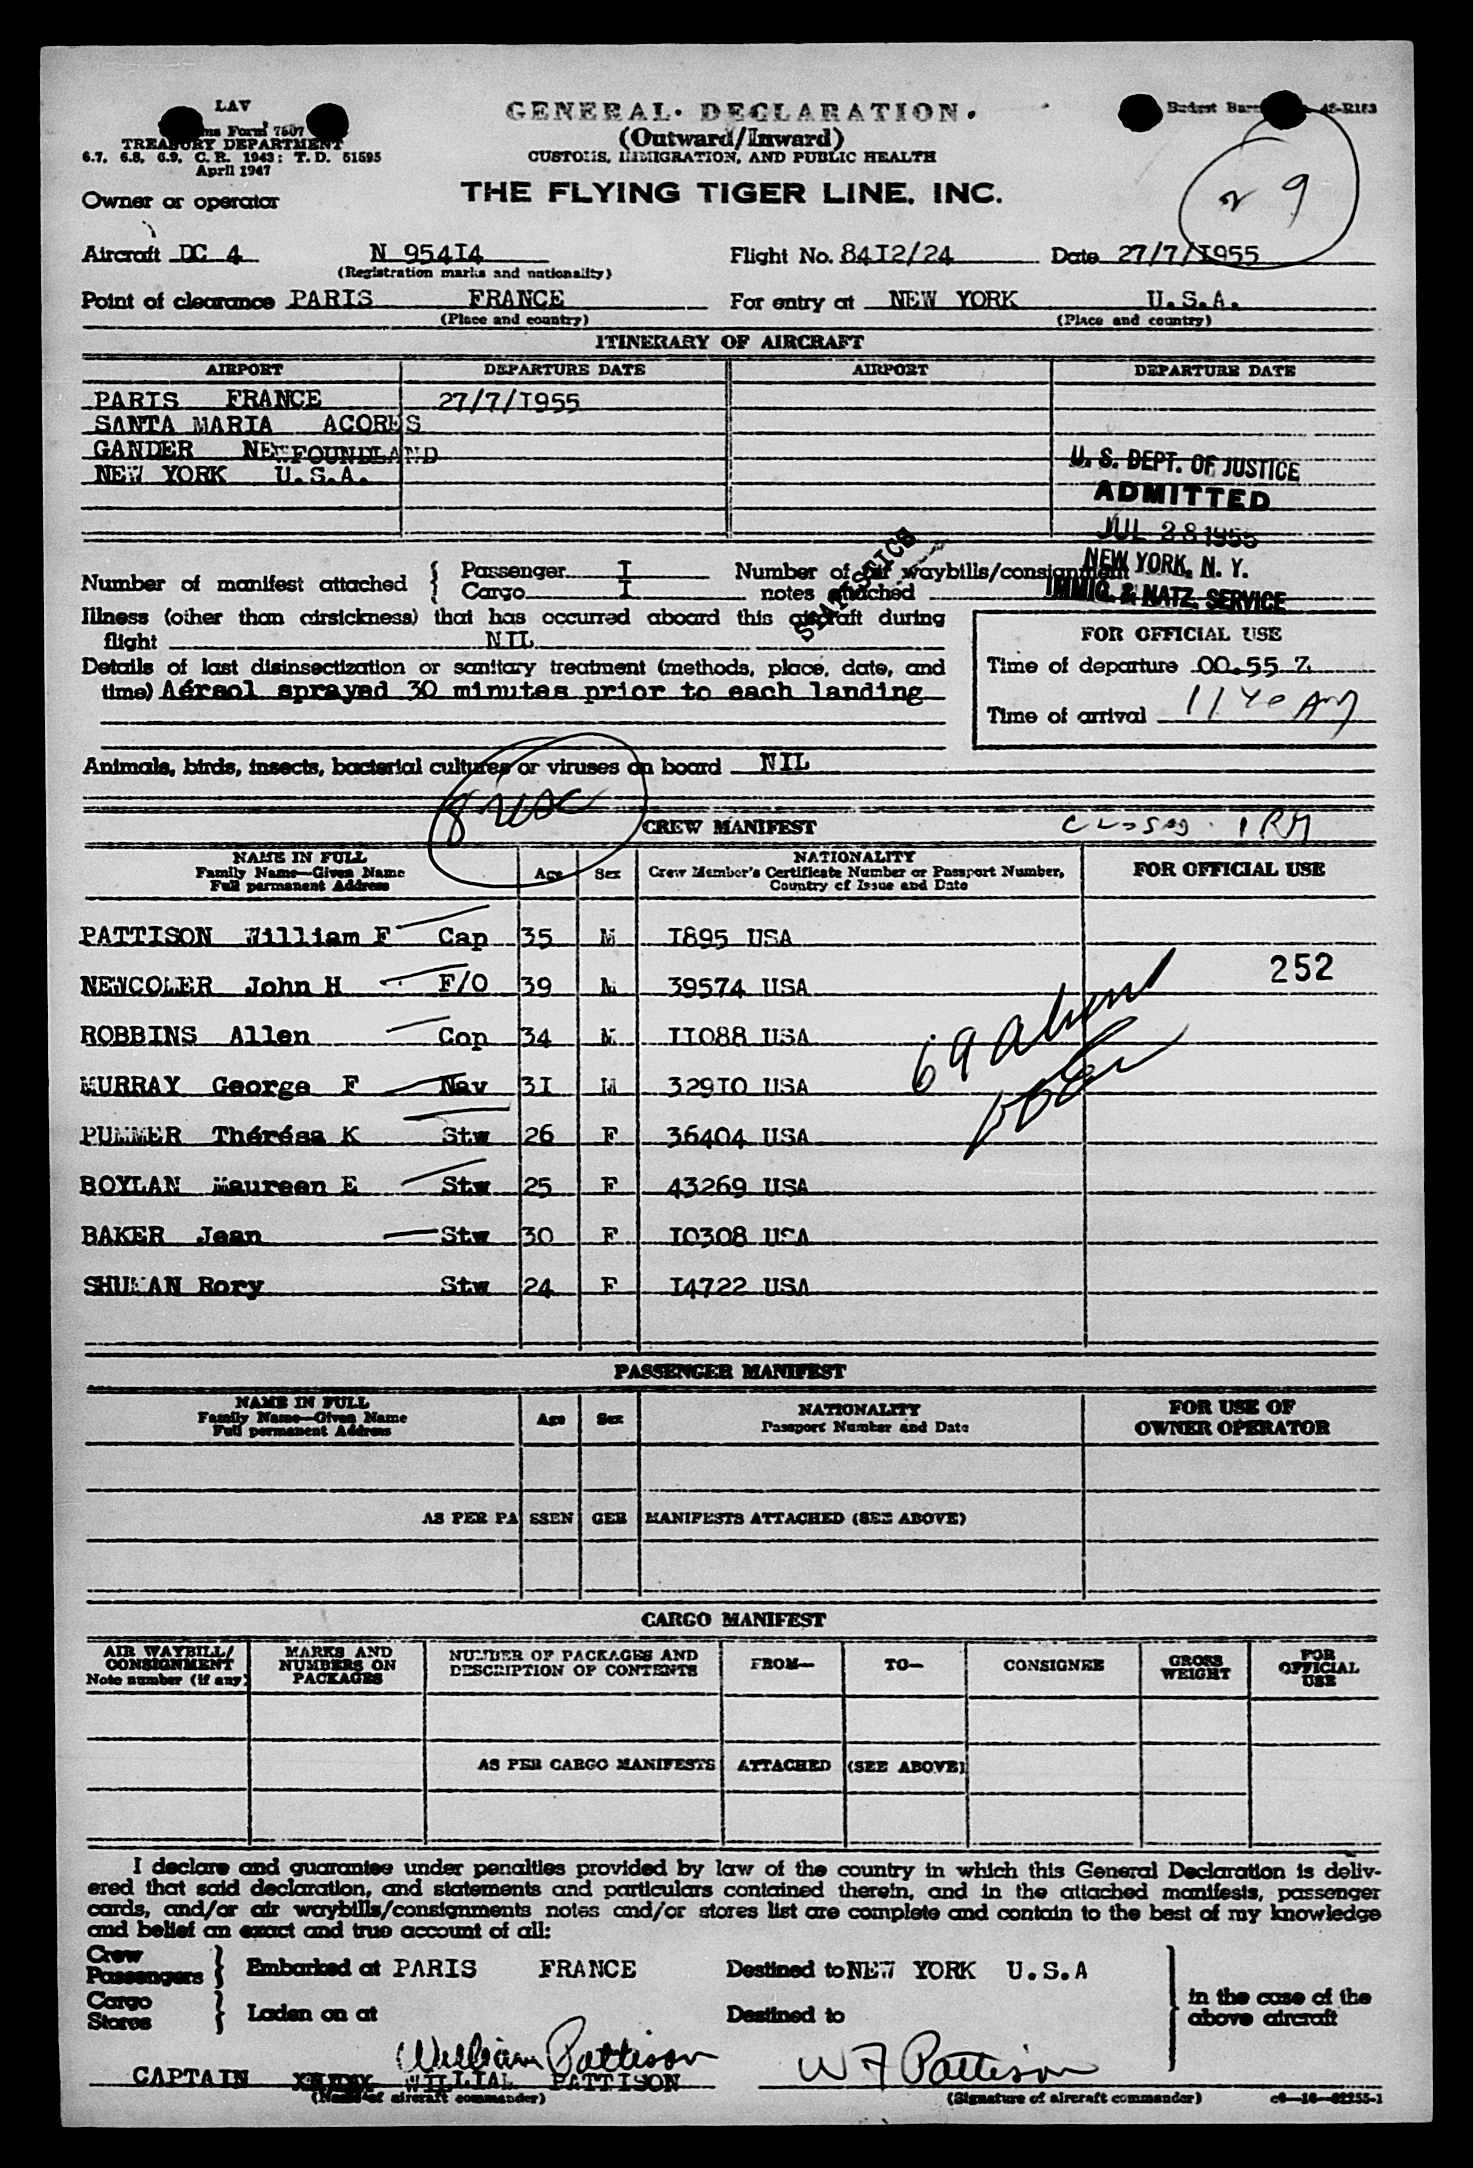 LAV
GENERAL DECLARATION.
Form 7507
(Outward/Inward)
TREASURY DEPARTMENT
6.7, 6.8, 6.9, C. R. 1943; T. D. 51595
April 1947
CUSTOMS, IMMIGRATION, AND PUBLIC HEALTH
THE FLYING TIGER LINE, INC.
29
Owner or operator
Aircraft DC 4 N 95414 Flight No. 84I2/24 Date 27/7/I955
(Registration marks and nationality)
Point of clearance PARIS FRANCE For entry at NEW YORK U.S.A.
(Place and country) (Place and country)
ITINERARY OF AIRCRAFT
AIRPORT DEPARTURE DATE AIRPORT DEPARTURE DATE
PARIS FRANCE 27/7/I955
SANTA MARIA ACORES
GANDER NEWFOUNDLAND
NEW YORK U.S.A.
U. S. DEPT. OF JUSTICE
ADMITTED
JUL 28 1955
NEW YORK, N. Y.
IMMIG. & NATZ. SERVICE
STATISTICS
Number of manifest attached { Passenger I Number of air waybills/consignment
Cargo I notes attached
Illness (other than airsickness) that has occurred aboard this aircraft during
flight NIL
FOR OFFICIAL USE
Details of last disinsectization or sanitary treatment (methods, place, date, and
time) Aérsol sprayed 30 minutes prior to each landing
Time of departure 00.55 Z
Time of arrival 11 40 AM
Animals, birds, insects, bacterial cultures or viruses on board NIL
8 USC
CREW MANIFEST
NAME IN FULL
Family Name—Given Name
Full permanent Address
Age Sex
NATIONALITY
Crew Member's Certificate Number or Passport Number,
Country of Issue and Date
FOR OFFICIAL USE
PATTISON William F Cap 35 M I895 USA
NEWCOMER John H F/O 39 M 39574 USA
252
ROBBINS Allen Cop 34 M II088 USA
69 aliens
MURRAY George F Nav 3I M 329I0 USA
PUMMER Thérésa K Stw 26 F 36404 USA
BOYLAN Maureen E Stw 25 F 43269 USA
BAKER Jean Stw 30 F I0308 USA
SHUMAN Rory Stw 24 F I4722 USA
PASSENGER MANIFEST
NAME IN FULL
Family Name—Given Name
Full permanent Address
Age Sex
NATIONALITY
Passport Number and Date
FOR USE OF
OWNER OPERATOR
AS PER PASSENGER MANIFESTS ATTACHED (SEE ABOVE)
CARGO MANIFEST
AIR WAYBILL/
CONSIGNMENT
Note number (if any)
MARKS AND
NUMBERS ON
PACKAGES
NUMBER OF PACKAGES AND
DESCRIPTION OF CONTENTS
FROM— TO— CONSIGNEE
GROSS
WEIGHT
FOR
OFFICIAL
USE
AS PER CARGO MANIFESTS ATTACHED (SEE ABOVE)
I declare and guarantee under penalties provided by law of the country in which this General Declaration is deliv-
ered that said declaration, and statements and particulars contained therein, and in the attached manifests, passenger
cards, and/or air waybills/consignments notes and/or stores list are complete and contain to the best of my knowledge
and belief an exact and true account of all:
Crew
Passengers } Embarked at PARIS FRANCE Destined to NEW YORK U.S.A
Cargo
Stores } Laden on at Destined to
in the case of the
above aircraft
William Pattison W F Pattison
CAPTAIN WILLIAM PATTISON
(Name of aircraft commander) (Signature of aircraft commander)